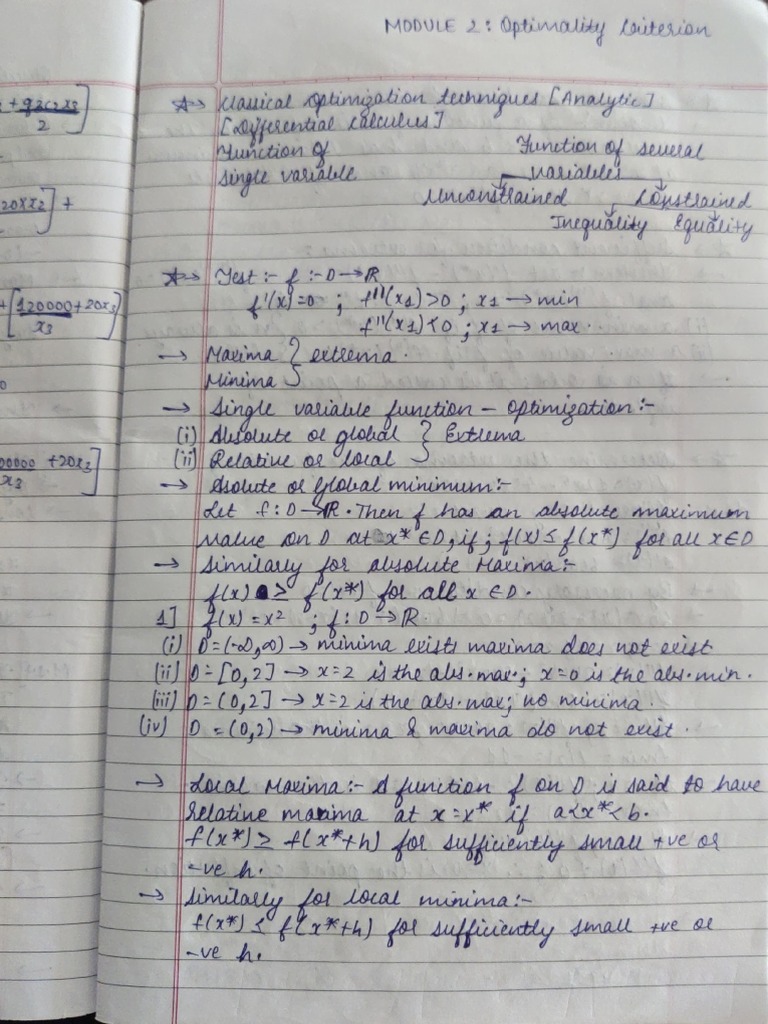 MODULE 2: Optimality Criterion
+ 92C2X2]
2
20XX2] +
+ [120000 + 20x3]
x3
00000 + 20x3]
x3
☆→ Classical Optimization Techniques [Analytic]
[Differential Calculus]
Function of Function of several
single variable variables
Unconstrained Constrained
Inequality Equality
☆→ Test:- f :- D→ℝ
f'(x)=0 ; f''(x1)>0 ; x1 → min
f''(x1)<0 ; x1 → max.
→ Maxima } extrema.
Minima }
→ Single variable function - optimization:-
(i) Absolute or global } Extrema
(ii) Relative or local }
→ Asolute or Global minimum:-
Let f: D→ℝ. Then f has an absolute maximum
value on D at x* ∈D, if; f(x) ≤ f(x*) for all x∈D
→ Similarly for absolute Maxima:-
f(x) ≥ f(x*) for all x ∈ D.
1] f(x) = x² ; f: D→ℝ.
(i) D=(-∞,∞) → minima exists maxima does not exist
(ii) D=[0,2] → x=2 is the abs. max.; x=0 is the abs. min.
(iii) D=(0,2] → x=2 is the abs. max; no minima.
(iv) D = (0,2) → minima & maxima do not exist.
→ Local Maxima:- A function f on D is said to have
relative maxima at x=x* if a<x*<b.
f(x*) ≥ f(x*+h) for sufficiently small +ve or
-ve h.
→ Similarly for local minima:-
f(x*) ≤ f(x*+h) for sufficiently small +ve or
-ve h.